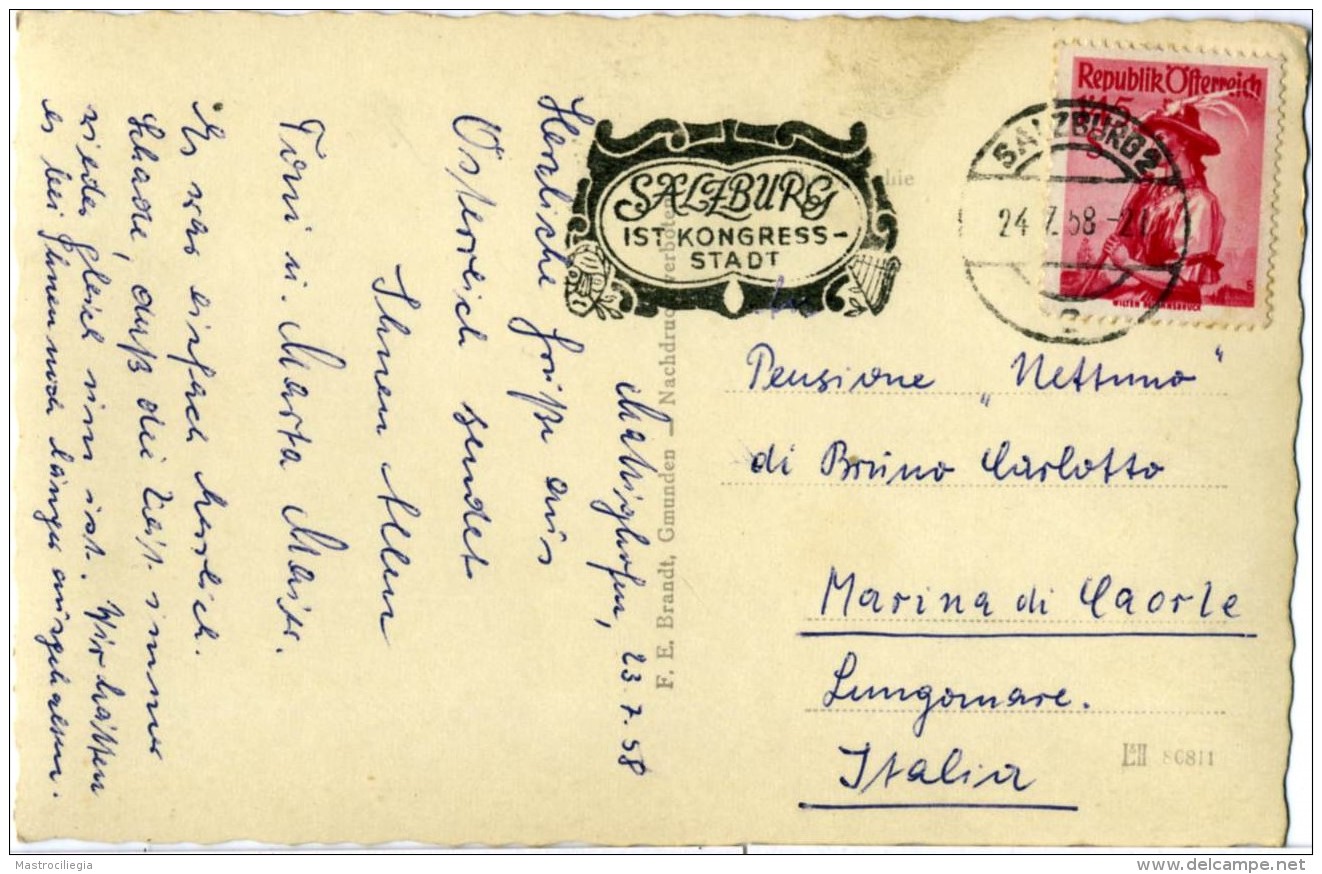 Mattighofen, 23.7.58
Herzliche Grüße aus
Österreich sendet
Ihnen Allen
Toni u. Marta
Es war einfach herrlich.
Schade, daß die Zeit immer
wieder gleich um ist. Wir hätten
es bei Ihnen noch länger ausgehalten.
F. E. Brandt, Gmunden — Nachdruck verboten
SALZBURG
IST KONGRESS-
STADT
Republik Österreich
SALZBURG 2
24. 7. 58 -21
2
Pensione „Nettuno“
di Bruno Carlotto
Marina di Caorle
Lungomare.
Italia
80811
Mastrociliegia
www.delcampe.net